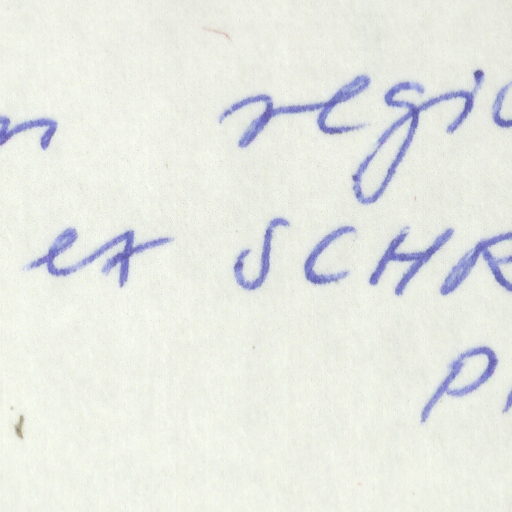 regio
et SCHR
P